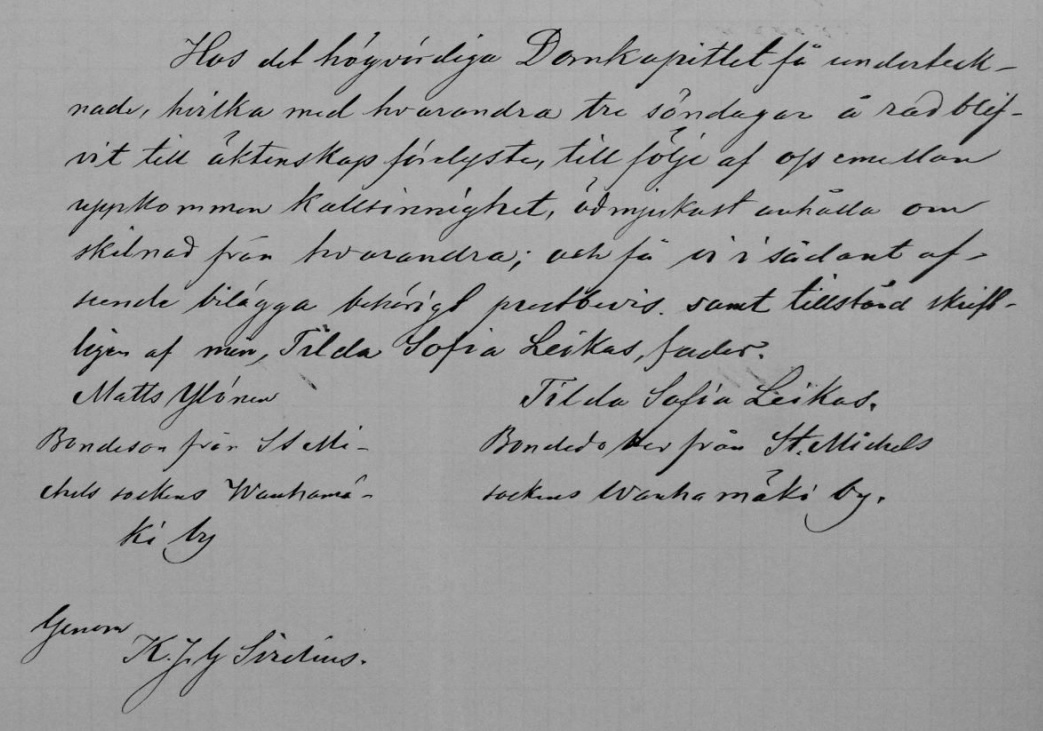 Hos det högvördiga Domkapitlet få underteck-
nade, hvilka med hvarandra tre söndagar å rad blif-
vit till äktenskap förelyste, till följe af oss emellan
uppkommen kallsinnighet, ödmjukast anhålla om
skilnad från hvarandra; och få vi i sådant af-
seende bilägga behörigt prestbevis samt tillstånd skrift-
ligen af min, Tilda Sofia Leikas, fader.
Matts Ylönen Tilda Sofia Leikas.
Bondeson från St Mi- Bondedotter från St. Michels
chels sockens Wanhamä- sockens Wanhamäki by.
ki by
Genom
K. J. G Sirelius.